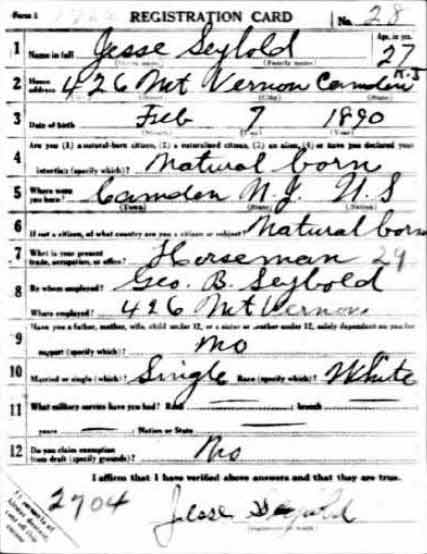 Form 1 REGISTRATION CARD No. 28
1 Name in full Jesse Seybold Age, in yrs. 27
(Given name) (Family name)
2 Home address 426 Mt Vernon Camden N.J
(No.) (Street) (City) (State)
3 Date of birth Feb 7 1890
(Month) (Day) (Year)
Are you (1) a natural-born citizen, (2) a naturalized citizen, (3) an alien, (4) or have you declared your
4 intention (specify which)? Natural born
5 Where were you born? Camden N.J. U.S
(Town) (State) (Nation)
6 If not a citizen, of what country are you a citizen or subject? Natural born
7 What is your present trade, occupation, or office? Horseman 29
8 By whom employed? Geo. B. Seybold
Where employed? 426 Mt Vernon
Have you a father, mother, wife, child under 12, or a sister or brother under 12, solely dependent on you for
9 support (specify which)? No
10 Married or single (which)? Single Race (specify which)? White
11 What military service have you had? Rank branch
years Nation or State
12 Do you claim exemption from draft (specify grounds)? No
I affirm that I have verified above answers and that they are true.
2704
Jesse Seybold